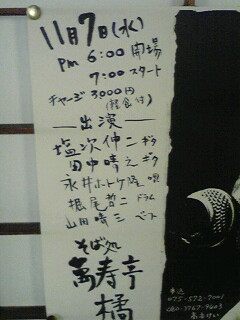 11月7日(水)
pm 6:00 開場
7:00 スタート
チャージ 3,000円
(軽食付)
出演
塩次伸二 ギタ
田中晴之 ギタ
永井ホトケ隆 唄
堀尾哲二 ドラム
山田晴三 ベース
そば処
萬寿亭
橘
申込
075-572-7001